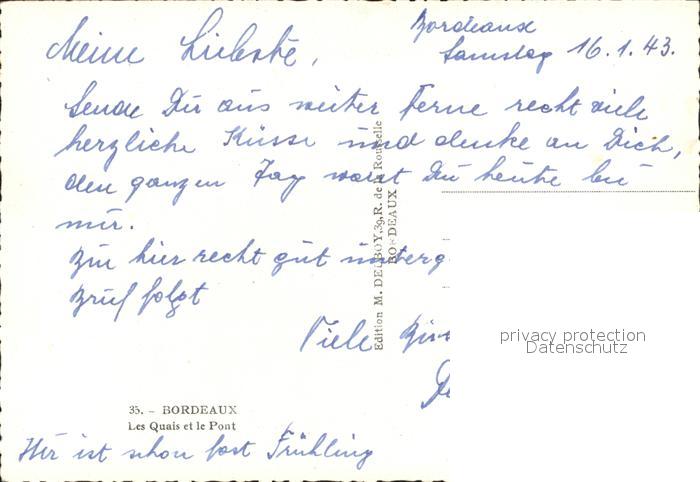 Bordeaux
Samstag 16.1.43.
Meine Liebste,
Sende Dir aus weiter Ferne recht viele
herzliche Küsse und denke an Dich,
den ganzen Tag warst Du heute bei
mir.
Bin hier recht gut unterg
Brief folgt
Viele
Edition M. DELBOY, 39, R. de la Rousselle
BORDEAUX
privacy protection
Datenschutz
35. - BORDEAUX
Les Quais et le Pont
Hier ist schon fast Frühling